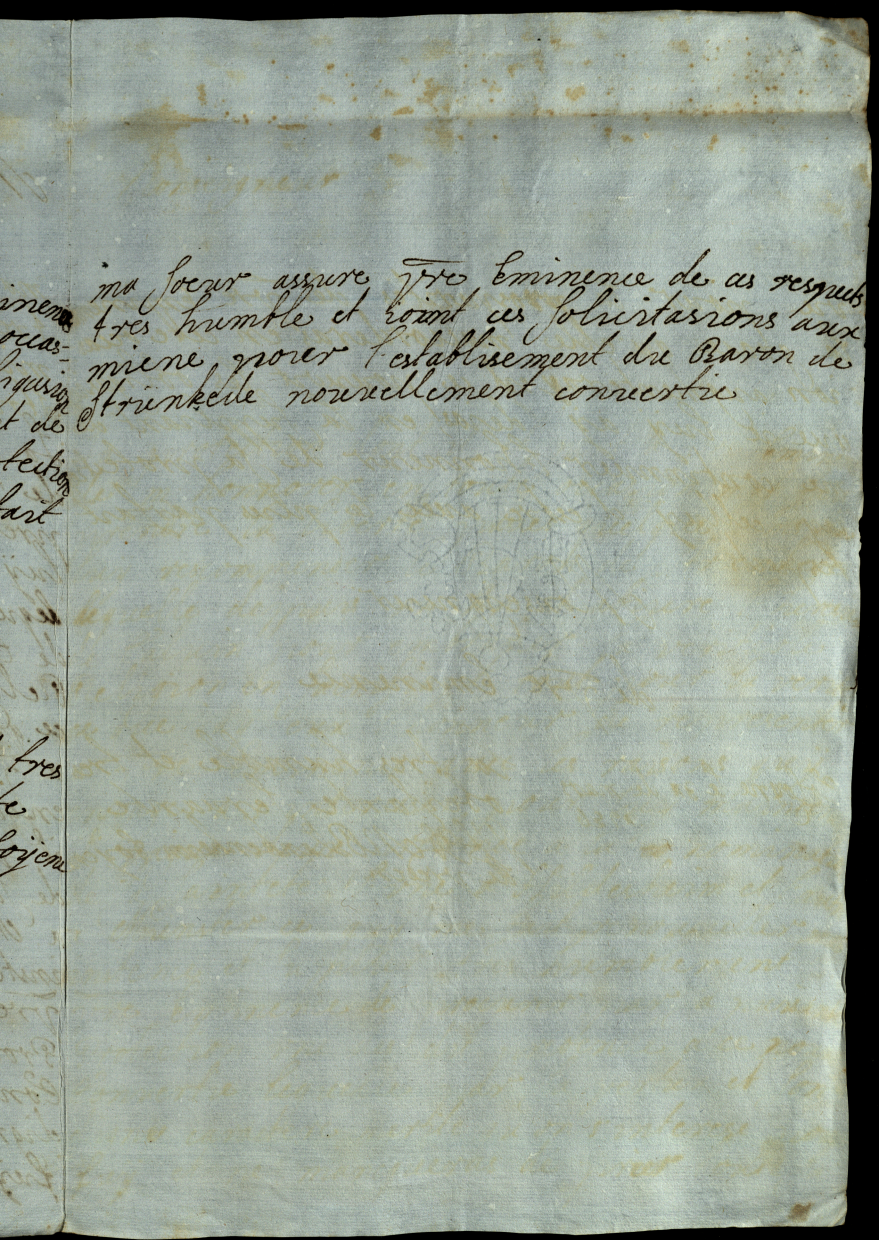 inences
occas=
ligasion
et de
tection
fait
tres
te
Soyene
ma soeur assure vre Eminence de ces respects
tres humble et joint ces solicitasions aux
miene pour l'establisement du Baron de
Strünkede nouvellement convertie